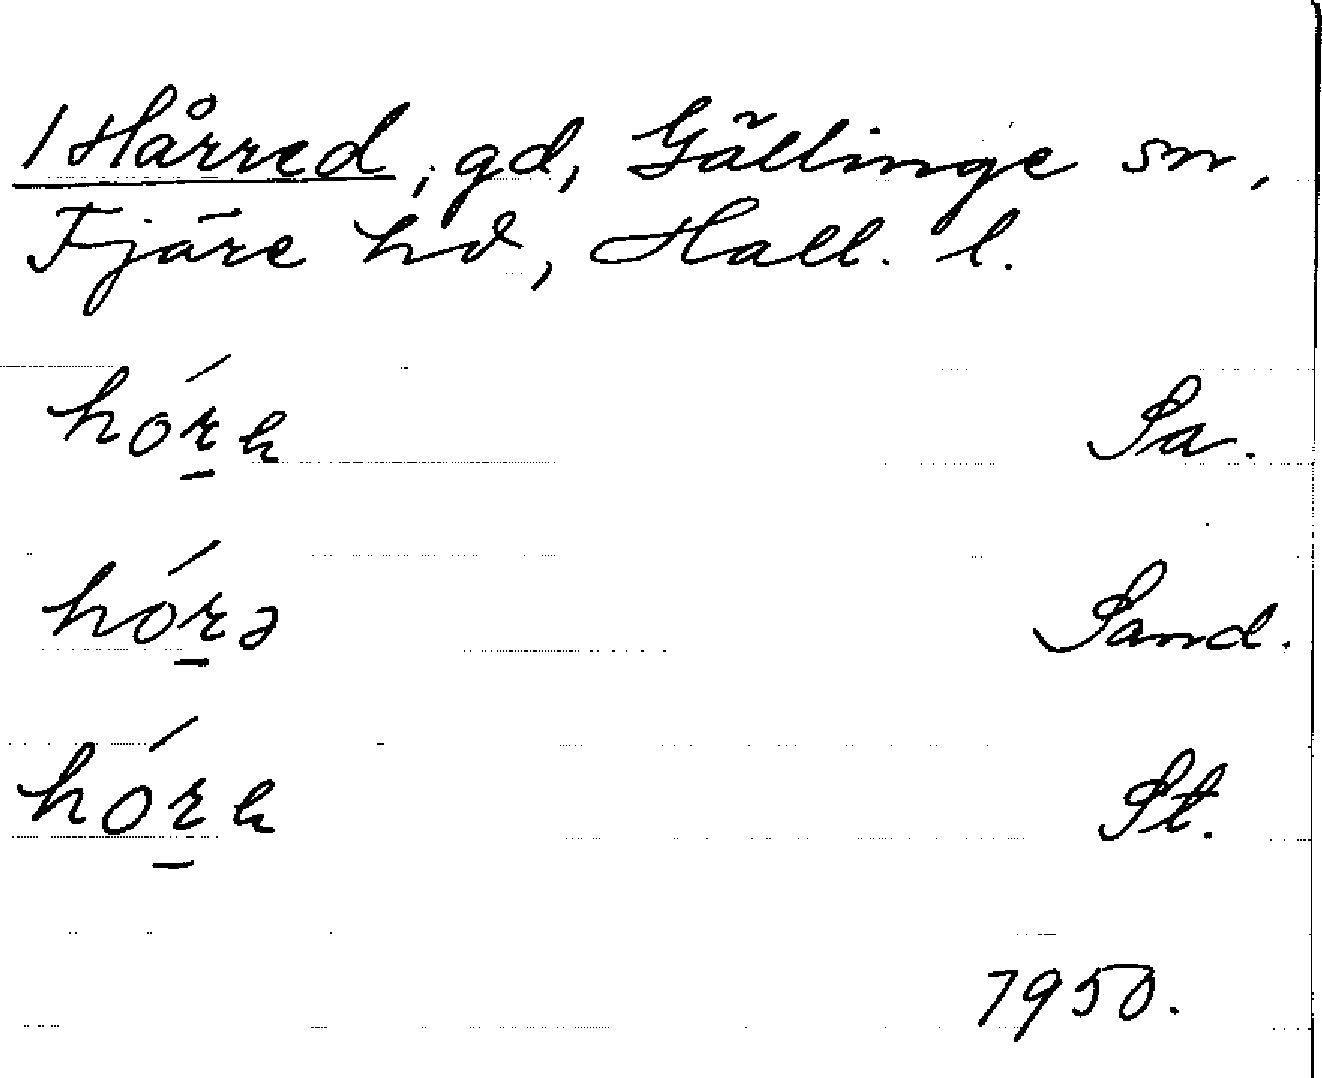 1 Hårred, gd, Gällinge sn,
Fjäre hd, Hall. l.
Sa.
hórə Sand.
St.
1950.